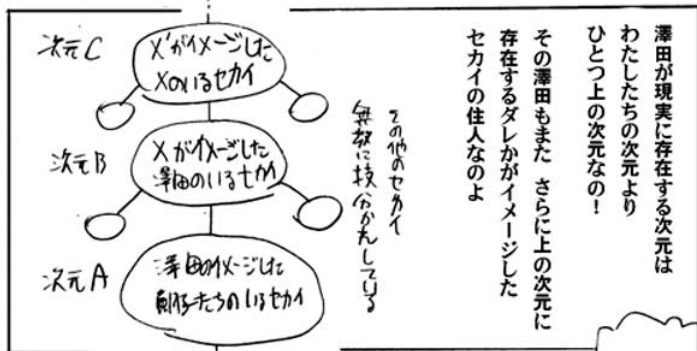 澤田が現実に存在する次元は
わたしたちの次元より
ひとつ上の次元なの！
その澤田もまた さらに上の次元に
存在するダレかがイメージした
セカイの住人なのよ
その他のセカイ
無数に枝分かれしている
次元C
X'がイメージした
Xのいるセカイ
次元B
Xがイメージした
澤田のいるセカイ
次元A
澤田のイメージした
たちのいるセカイ